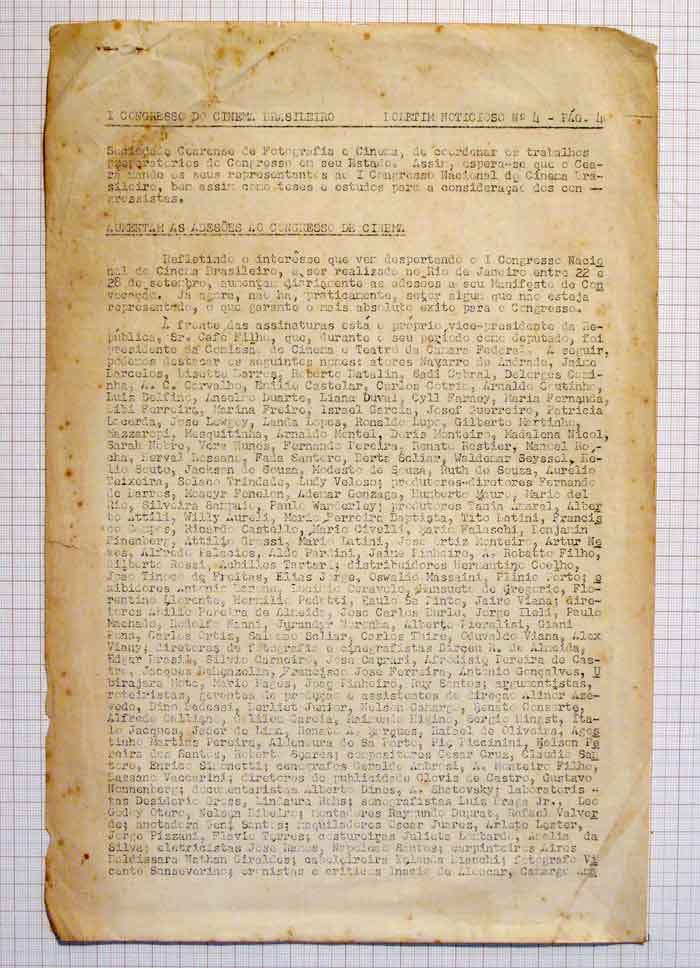 I CONGRESSO DO CINEMA BRASILEIRO BOLETIM NOTICIOSO Nº 4 - PÁG. 4
Sociedade Cearense de Fotografia e Cinema, de coordenar os trabalhos
preparatorios do Congresso em seu Estado. Assim, espera-se que o Cea-
rá mande os seus representantes ao I Congresso Nacional do Cinema Bra-
sileiro, bem assim como teses e estudos para a consideração dos con -
gressistas.
AUMENTAM AS ADESÕES AO CONGRESSO DE CINEMA
Refletindo o interêsse que vem despertando o I Congresso Nacio
nal do Cinema Brasileiro, a ser realizado no Rio de Janeiro entre 22 e
28 de setembro, aumentam diariamente as adesões a seu Manifesto de Con
vocação. Já agora, não há, praticamente, setor algum que não esteja
representado, o que garante o mais absoluto exito para o Congresso.
À frente das assinaturas está o próprio vice-presidente da Re-
pública, Sr. Café Filho, que, durante o seu período como deputado, foi
presidente da Comissão de Cinema e Teatro da Camara Federal. A seguir,
podemos destacar os seguintes nomes: atores Navarro de Andrade, Jaime
Barcelos, Lisette Barros, Roberto Batalin, Sadi Cabral, Delorges Cami-
nha, A. C. Carvalho, Emilio Castelar, Carlos Cotrim, Arnaldo Coutinho,
Luiz Delfino, Anselmo Duarte, Liana Duval, Cyll Farney, Maria Fernanda,
Bibi Ferreira, Marina Freire, Israel Garcia, Josef Guerreiro, Patricia
Lacerda, Jose Lewgoy, Landa Lopes, Ronaldo Lupo, Gilberto Martinho,
Mazzaropi, Mesquitinha, Arnaldo Montel, Doris Monteiro, Madalena Nicol,
Sarah Nobre, Vera Nunes, Fernando Pereira, Renato Restier, Manoel Ro-
cha, Herval Rossano, Fada Santoro, Berta Scliar, Waldemar Seyssel, He-
lio Souto, Jackson de Souza, Modesto de Souza, Ruth de Souza, Aurelio
Teixeira, Solano Trindade, Ludy Veloso; produtores-diretores Fernando
de Barros, Moacyr Fenelon, Ademar Gonzaga, Humberto Mauro, Mario del
Rio, Silveira Sampaio, Paulo Wanderley; produtores Tania Amaral, Alber
to Attili, Willy Aureli, Mario Ferreira Baptista, Tito Batini, Francis
co Campos, Ricardo Castello, Mario Civelli, Mario Falaschi, Benjamin
Finenberg, Attilio Grossi, Mario Latini, Jose Ortiz Monteiro, Artur Ne
ves, Alfredo Palacios, Aldo Pardini, Jaime Pinheiro, A. Robatto Filho,
Gilberto Rossi, Achilles Tartari; distribuidores Hermantino Coelho,
Jose Tinoco de Freitas, Elias Jorge, Oswaldo Massaini, Plinio Porto; e
xibidores Antonio Lucinio Caravelo, Mansueto de Gregorio, Flo-
rentino Llorente, Herminio Pedetti, Paulo Sá Pinto, Jairo Viana; dire-
tores Abilio Pereira de Almeida, Jose Carlos Burle, Jorge Ileli, Paulo
Machado, Rodolfo Nanni, Jurandyr Noronha, Alberto Pieralisi, Giani
Pons, Carlos Ortiz, Salomão Scliar, Carlos Thiré, Oduvaldo Viana, Alex
Viany; diretores de fotografia e cinegrafistas Dirceu N. de Almeida,
Edgar Brasil, Silvio Carneiro, Jose Caprari, Afrodisio Pereira de Cas-
tro, Jacques Deheinzelin, Francisco Jose Ferreira, Antonio Gonçalves, U
birajara Mota, Mario Pages, João Pinheiro, Ruy Santos; argumentistas,
roteiristas, gerentes de produção e assistentes de direção Alinor Aze-
vedo, Dino Badessi, Berliet Junior, Nelson Camargo, Renato Consorte,
Alfredo Galliano, Galileu Garcia, Raimundo Higino, Sergio Hingst, Íta-
lo Jacques, Jader de Lima, Renato A. Marques, Rafael de Oliveira, Agos
tinho Martins Pereira, Aldemaura de Sá Porto, Pio Piccinini, Nelson Pe
reira dos Santos, Robert Soares; compositores Cesar Cruz, Claudio San
toro, Enrico Simonetti; cenografos Geraldo Ambrosi, A. Monteiro Filho,
Bassano Vaccarini; diretores de publicidade Clovis de Castro, Gustavo
Nonnenberg; documentaristas Alberto Dines, A. Shatovsky; laboratoris -
tas Desiderio Gross, Lindaura Rehs; sonografistas Luiz Braga Jr., Leo
Godoy Otero, Nelson Ribeiro; montadores Raymundo Duprat, Rafael Valver
de; anotadora Santos; maquiladores Oscar Juarez, Aristo Lester,
Jorge Pizzani, Flavio Torres; costureiras Julieta Amelia da
Silva; eletricistas Jose Napoleão Santos; carpinteiros Aires
Baldissara Nathan Giraldes; cabeleireira Yolanda Bianchi; fotografo Vi
cente Sanseverino; cronistas e criticos Inacio de Alencar, Camargo